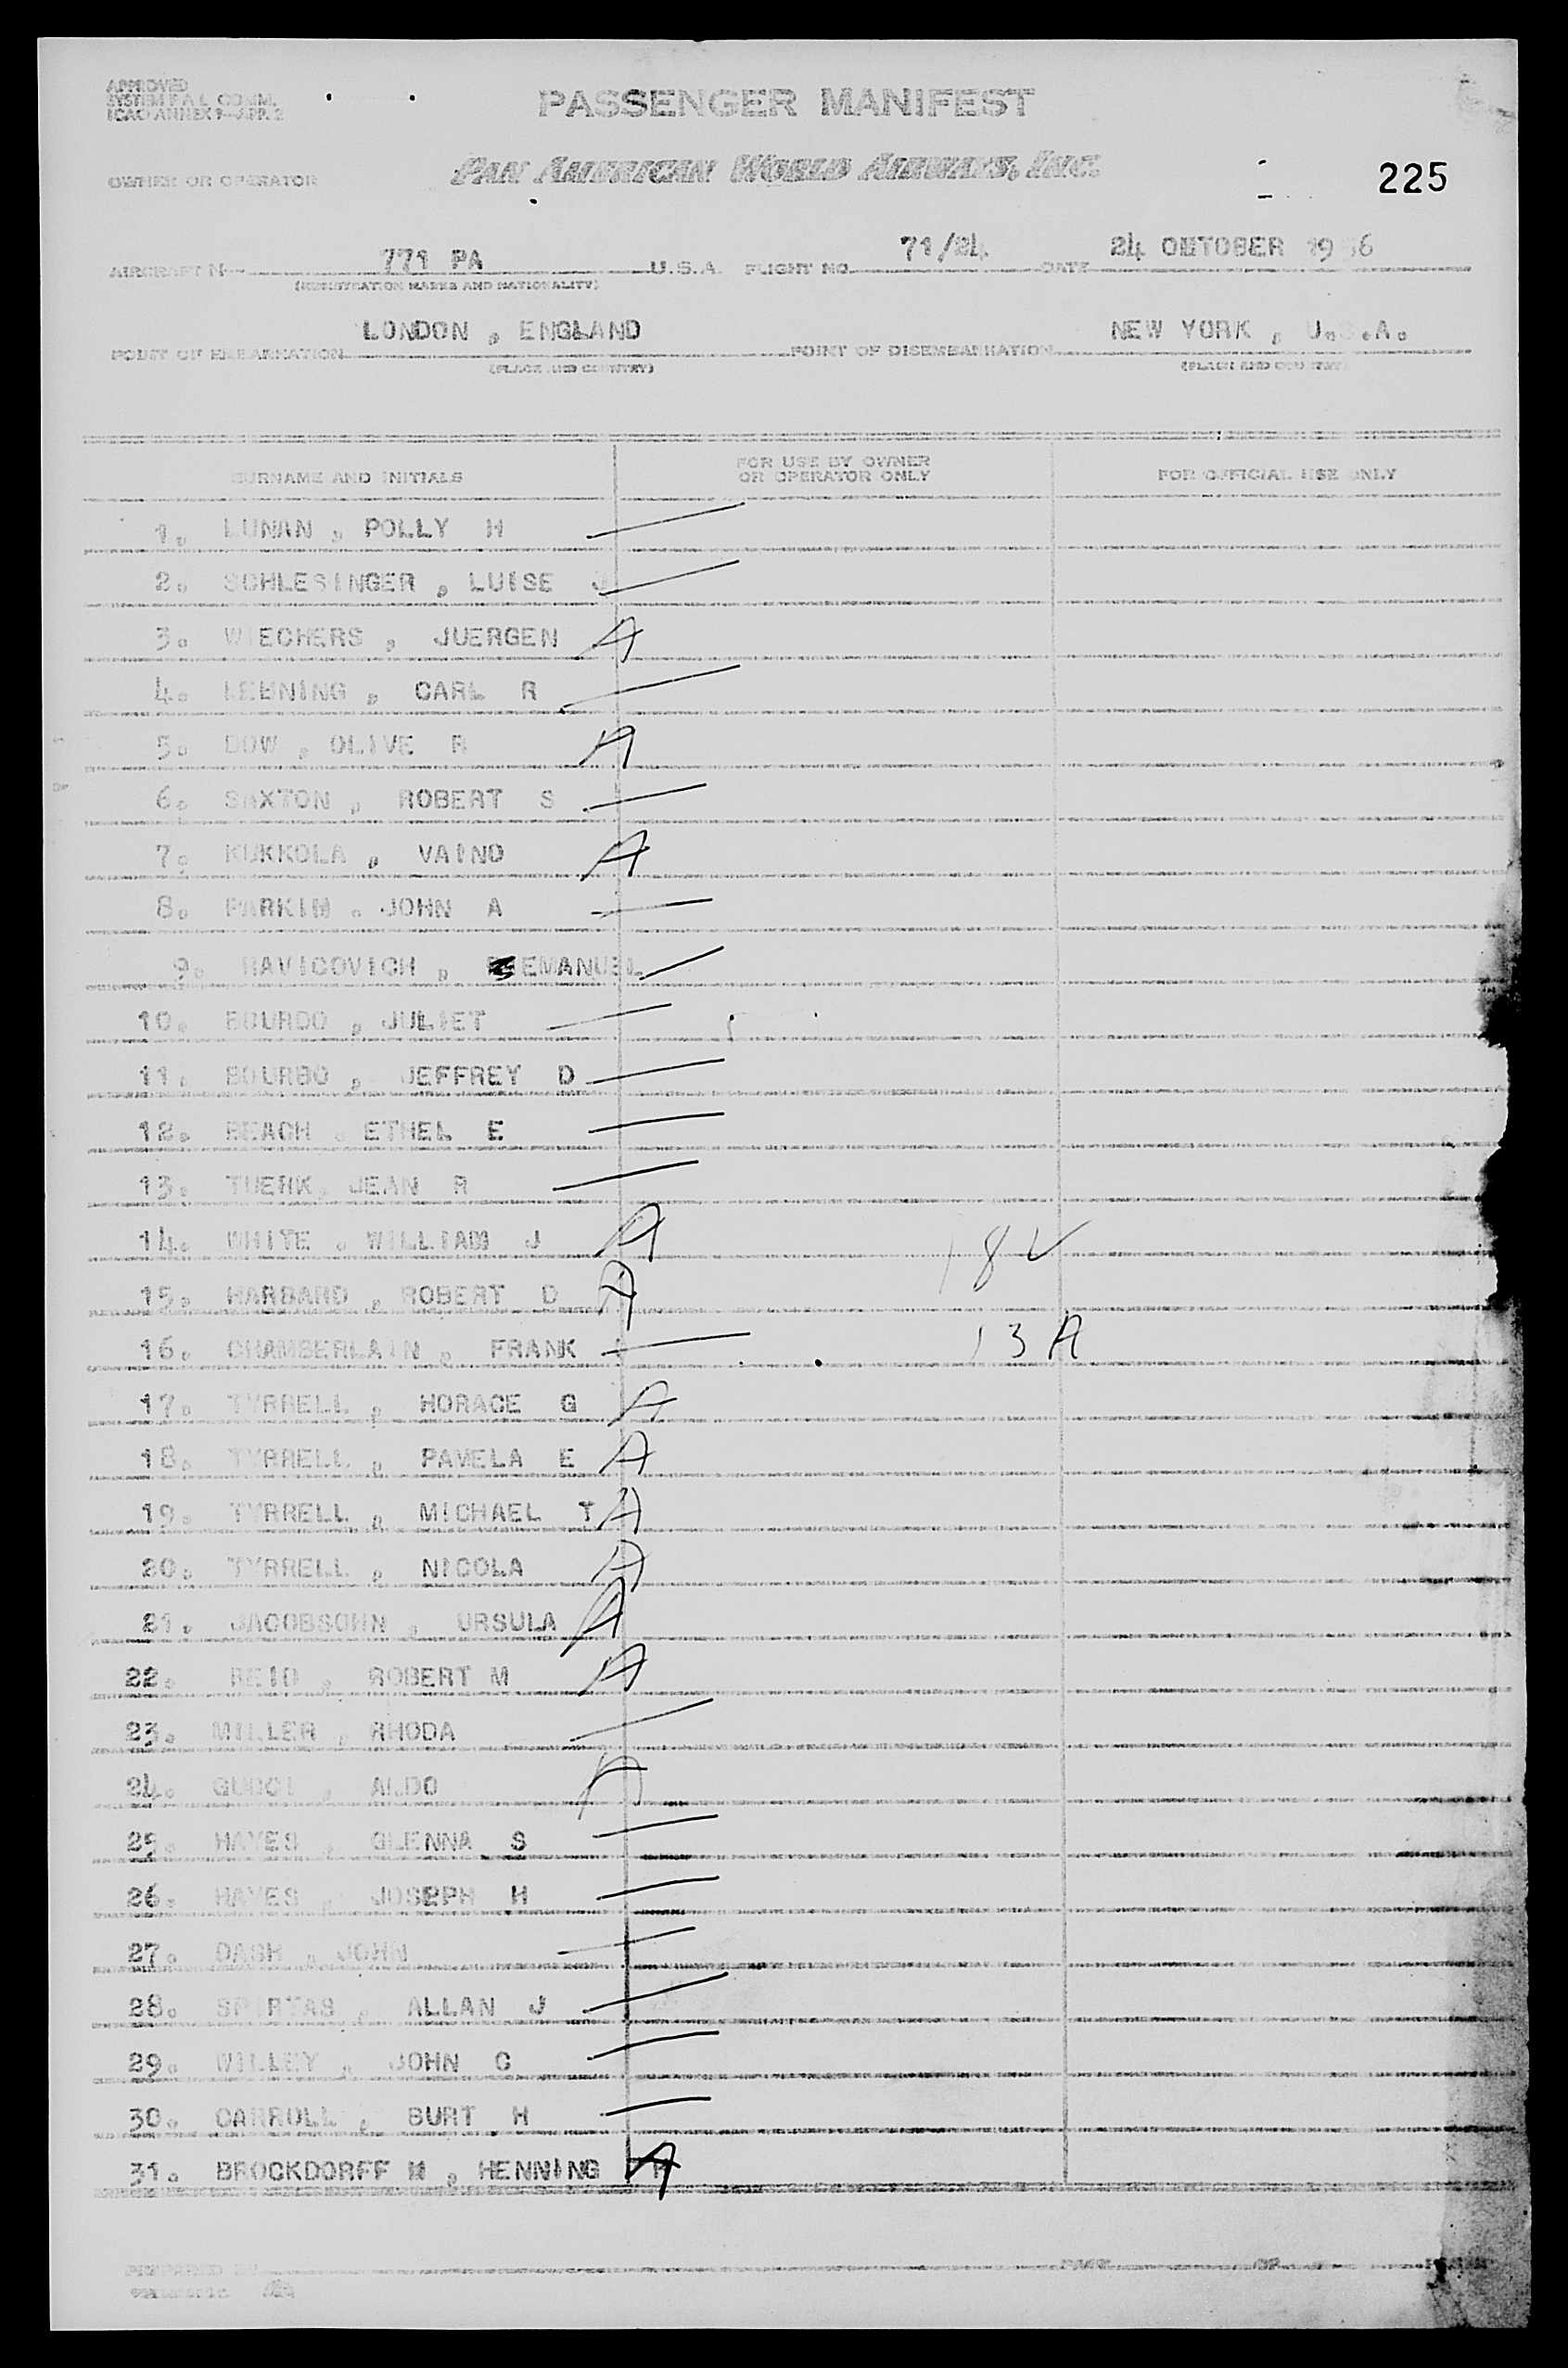 APPROVED
SYSTEM F.A.L. COMM.
ICAO ANNEX 9-APP. 2
PASSENGER MANIFEST
OWNER OR OPERATOR
PAN AMERICAN WORLD AIRWAYS, INC.
225
AIRCRAFT N 771 PA U.S.A. FLIGHT NO. 71/24 DATE 24 OCTOBER 19 6
(REGISTRATION MARKS AND NATIONALITY)
POINT OF EMBARKATION LONDON , ENGLAND POINT OF DISEMBARKATION NEW YORK , U.S.A.
(PLACE AND COUNTRY) (PLACE AND COUNTRY)
SURNAME AND INITIALS
FOR USE BY OWNER
OR OPERATOR ONLY
FOR OFFICIAL USE ONLY
1. LUNAN , POLLY H
2. SCHLESINGER , LUISE J
3. WIECHERS , JUERGEN A
4. CARL R
5. DOW , OLIVE R A
6. SAXTON , ROBERT S
7. KUKKOLA , VAINO A
8. PARKIN , JOHN A
9. RAVICOVICH , EMANUEL
10. BOURDO , JULIET
11. BOURBO , JEFFREY D
12. BEACH , ETHEL E
13. TUERK, JEAN R
14. WHITE , WILLIAM J A 18 ✓
15. HARBARD , ROBERT D A
16. CHAMBERLAIN , FRANK 13 A
17. TYRRELL , HORACE G A
18. TYRRELL , PAMELA E A
19. TYRRELL , MICHAEL T A
20. TYRRELL , NICOLA A
21. JACOBSOHN , URSULA A
22. REID , ROBERT M A
23. MILLER , RHODA
24. GUCCI , ALDO A
25. HAYES , GLENNA S
26. HAYES , JOSEPH H
27. DASH , JOHN
28. SPIRTAS , ALLAN J
29. WILLEY , JOHN C
30. CARROLL , BURT H
31. BROCKDORFF M , HENNING A
PREPARED BY PAGE OF